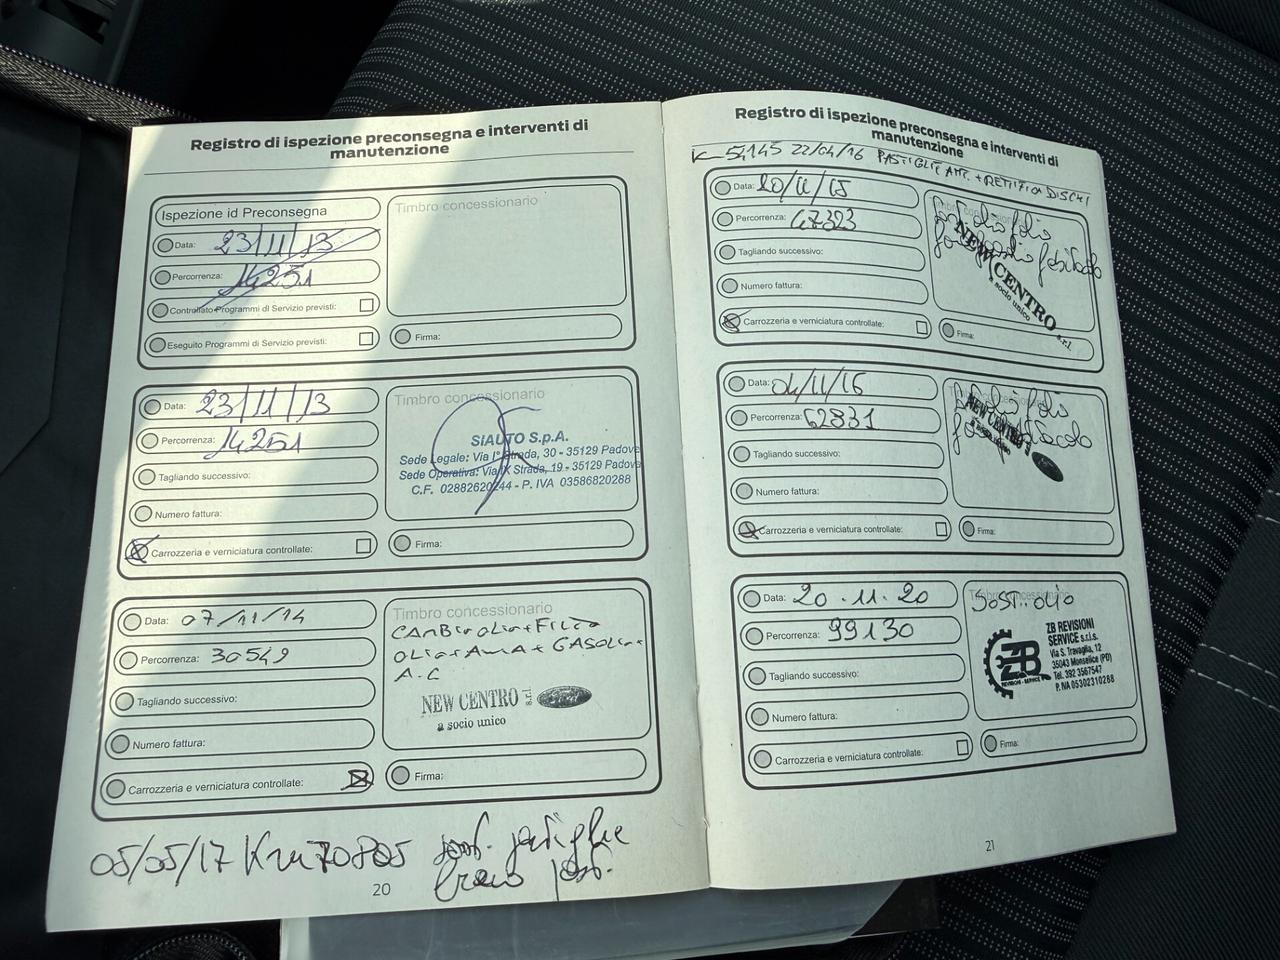 Registro di ispezione preconsegna e interventi di
manutenzione
Ispezione id Preconsegna
Data: 23/11/13
Percorrenza: 14251
Controllato Programmi di Servizio previsti:
Eseguito Programmi di Servizio previsti:
Timbro concessionario
Firma:
Data: 23/11/13
Percorrenza: 14251
Tagliando successivo:
Numero fattura:
Carrozzeria e verniciatura controllate:
Timbro concessionario
SiAUTO S.p.A.
Sede Legale: Via I° Strada, 30 - 35129 Padova
Sede Operativa: Via IX Strada, 19 - 35129 Padova
C.F. 02882620244 - P. IVA 03586820288
Firma:
Data: 07/11/14
Percorrenza: 30549
Tagliando successivo:
Numero fattura:
Carrozzeria e verniciatura controllate:
Timbro concessionario
CAMBIO OLIO + FILTRO
OLIO + ARIA + GASOLIO +
A.C
NEW CENTRO s.r.l.
a socio unico
Firma:
05/05/17 Km 70805 sost. pastiglie
freno post.
20
Registro di ispezione preconsegna e interventi di
manutenzione
K 54145 22/04/16 PASTIGLIE ANT. + RETTIFICA DISCHI
Data:
Percorrenza: 47323
Tagliando successivo:
Numero fattura:
Carrozzeria e verniciatura controllate:
NEW CENTRO s.r.l.
a socio unico
Firma:
Data: 04/11/16
Percorrenza: 62831
Tagliando successivo:
Numero fattura:
Carrozzeria e verniciatura controllate:
NEW CENTRO
Firma:
Data: 20.11.20
Percorrenza: 99130
Tagliando successivo:
Numero fattura:
Carrozzeria e verniciatura controllate:
Timbro concessionario
SOST. OLIO
ZB
REVISIONI - SERVICE
ZB REVISIONI
SERVICE s.r.l.s.
Via S. Travaglia, 12
35043 Monselice (PD)
Tel. 392 3567547
P. IVA 05302310288
Firma:
21